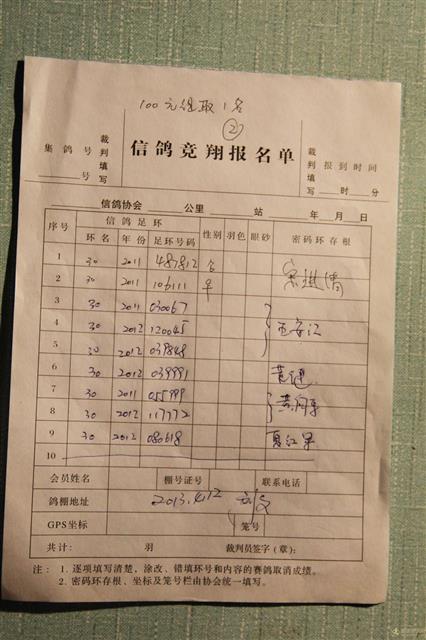 100元组取1名
②
信鸽竞翔报名单
集鸽号
号
裁判填写
裁判填写
报到时间
时 分
信鸽协会 公里 站 年 月 日
序号 信鸽足环 性别 羽色 眼砂 密码环存根
环名 年份 足环号码
1 30 2011 487812
2 30 2011 106111
3 30 2011 030067
4 30 2012 120045
5 30 2012 039848
6 30 2012 039991
7 30 2011 055999
8 30 2012 117772
9 30 2012 080618
10
会员姓名 棚号证号 联系电话
鸽棚地址 2013.4.12
GPS坐标 笼号
共计: 羽 裁判员签字(章):
注:1. 逐项填写清楚,涂改、错填环号和内容的赛鸽取消成绩。
2. 密码环存根、坐标及笼号栏由协会统一填写。